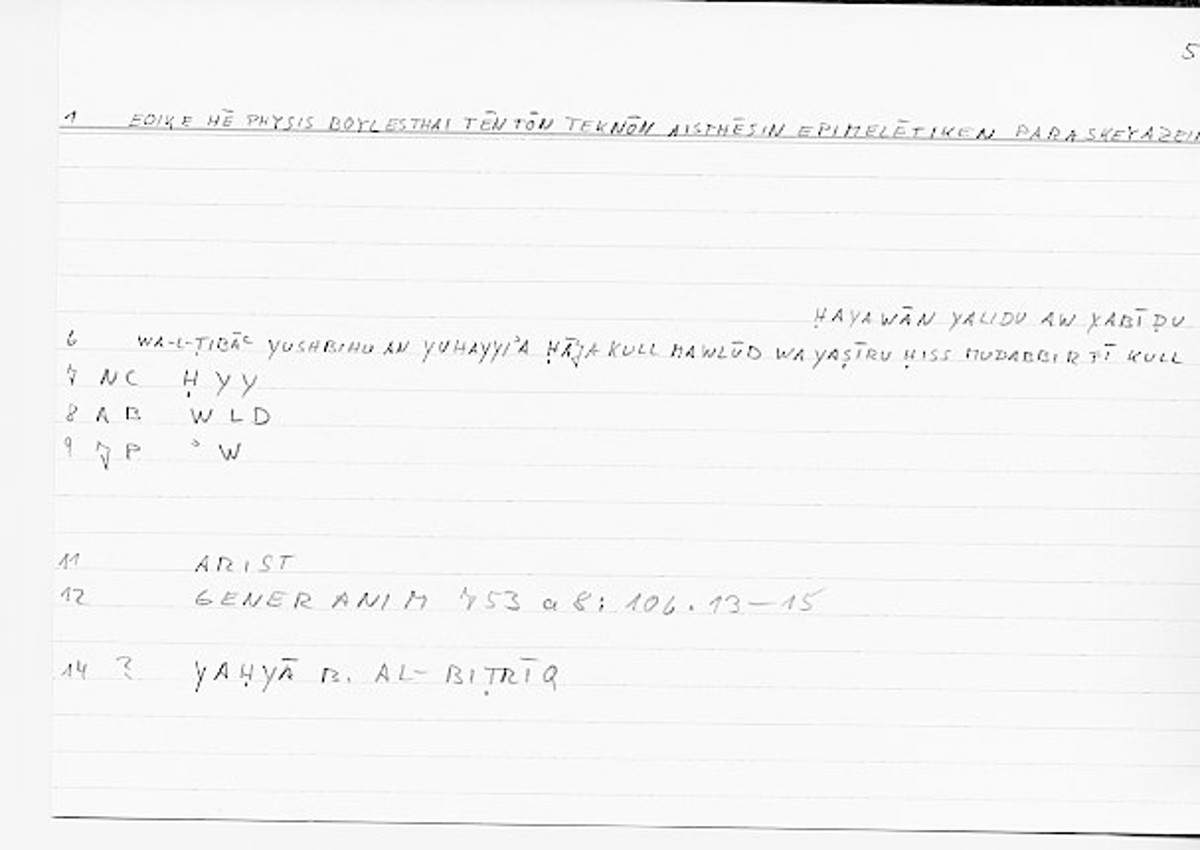 5
1 EOIKE HĒ PHYSIS BOYLESTHAI TĒN TŌN TEKNŌN AISTHĒSIN EPIMELĒTIKEN PARASKEYAZEIN
ḤAYAWĀN YALIDU AW YABĪḌU
6 WA-L-ṬIBĀʿ YUSHBIHU AN YUHAYYIʾA ḤĀǧA KULL MAWLŪD WA YAṢĪRU ḤISS MUDABBIR FĪ KULL
7 NC ḤYY
8 AB WLD
9 ʾW
11 ARIST
12 GENER ANIM 753 a 8 : 106.13—15
14 ? YAḤYĀ B. AL-BIṬRĪQ